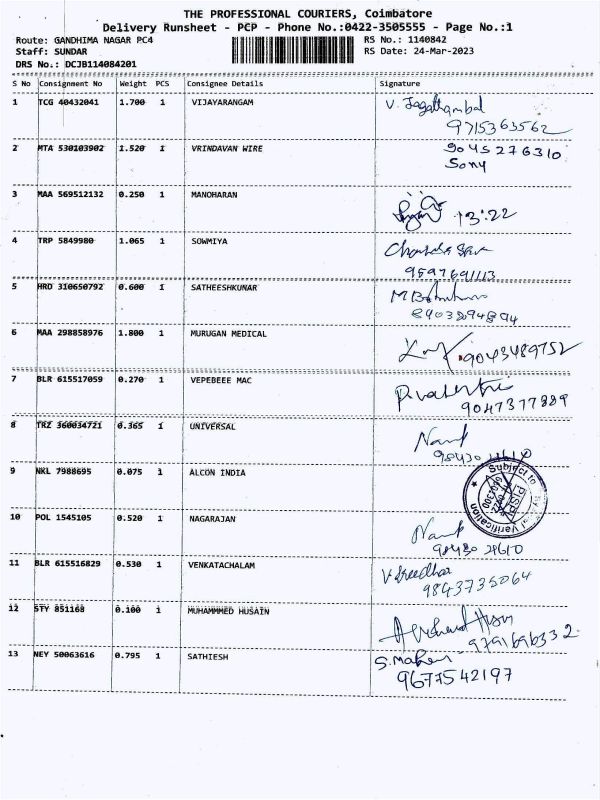 THE PROFESSIONAL COURIERS, Coimbatore
Delivery Runsheet - PCP - Phone No.:0422-3505555 - Page No.:1
Route: GANDHIMA NAGAR PC4
RS No.: 1140842
Staff: SUNDAR
RS Date: 24-Mar-2023
DRS No.: DCJB114084201
S No Consignment No Weight PCS Consignee Details Signature
1 TCG 40432041 1.700 1 VIJAYARANGAM V. Jagathambal
9715363562
2 MTA 530103902 1.520 1 VRINDAVAN WIRE 9045276310
Sony
3 MAA 569512132 0.250 1 MANOHARAN
13:22
4 TRP 5849980 1.065 1 SOWMIYA
9597691113
5 HRD 310650792 0.600 1 SATHEESHKUNAR
8903894894
6 MAA 298858976 1.800 1 MURUGAN MEDICAL
9043489752
7 BLR 615517059 0.270 1 VEPEBEEE MAC
9047377889
8 TRZ 360034721 0.365 1 UNIVERSAL
9 NKL 7988695 0.075 1 ALCON INDIA
Subject to
Verification
10 POL 1545105 0.520 1 NAGARAJAN
98430 21610
11 BLR 615516829 0.530 1 VENKATACHALAM V Sreedhar
9843735064
12 STY 851168 0.100 1 MUHAMMMED HUSAIN
9791696332
13 NEY 50063616 0.795 1 SATHIESH S. Mahesh
9677542197